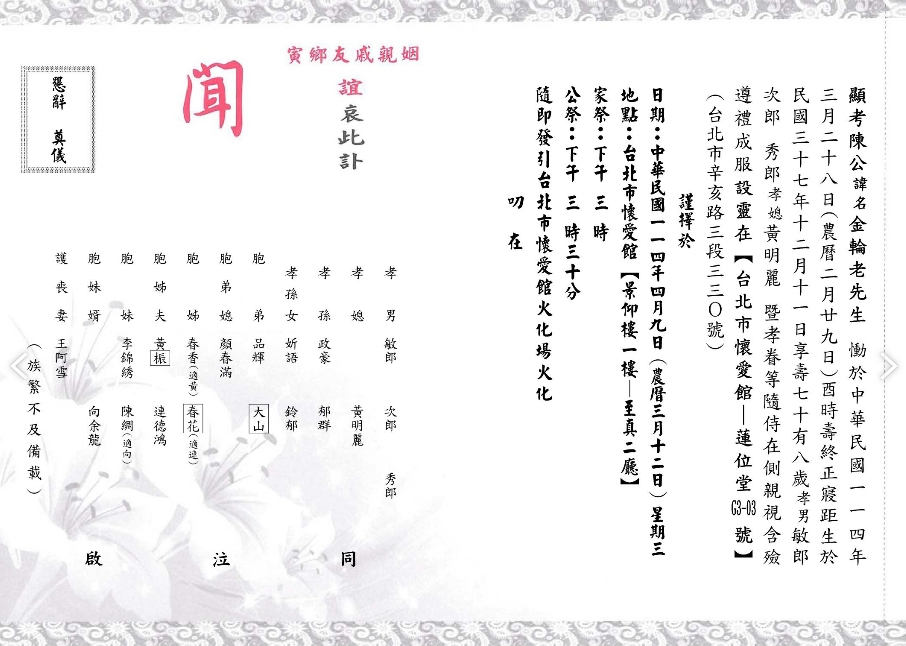 顯考陳公諱名金輪老先生 慟於中華民國一一四年
三月二十八日(農曆二月廿九日)酉時壽終正寢距生於
民國三十七年十二月十一日享壽七十有八歲孝男敏郎
次郎 秀郎孝媳黃明麗 暨孝眷等隨侍在側親視含殮
遵禮成服設靈在【台北市懷愛館—蓮位堂G3-03號】
(台北市辛亥路三段三三○號)
謹擇於
日期:中華民國一一四年四月九日(農曆三月十二日)星期三
地點:台北市懷愛館【景仰樓一樓—至真二廳】
家祭:下午 三 時
公祭:下午 三 時三十分
隨即發引台北市懷愛館火化場火化
叨 在
姻親戚友鄉寅
誼哀此訃
聞
孝 男 敏郎 次郎 秀郎
孝 媳 黃明麗
孝 孫 政豪 郁群
孝孫女 妡語 鈴郁
胞 弟 品輝 大山
胞弟媳 顏春滿
胞 姊 春香(適黃) 春花(適連)
胞姊夫 黃振 連德鴻
胞 妹 李錦綉 陳綢(適向)
胞妹婿 向余龍
護喪妻 王阿雪
(族繁不及備載)
同 泣 啟
懇辭 奠儀